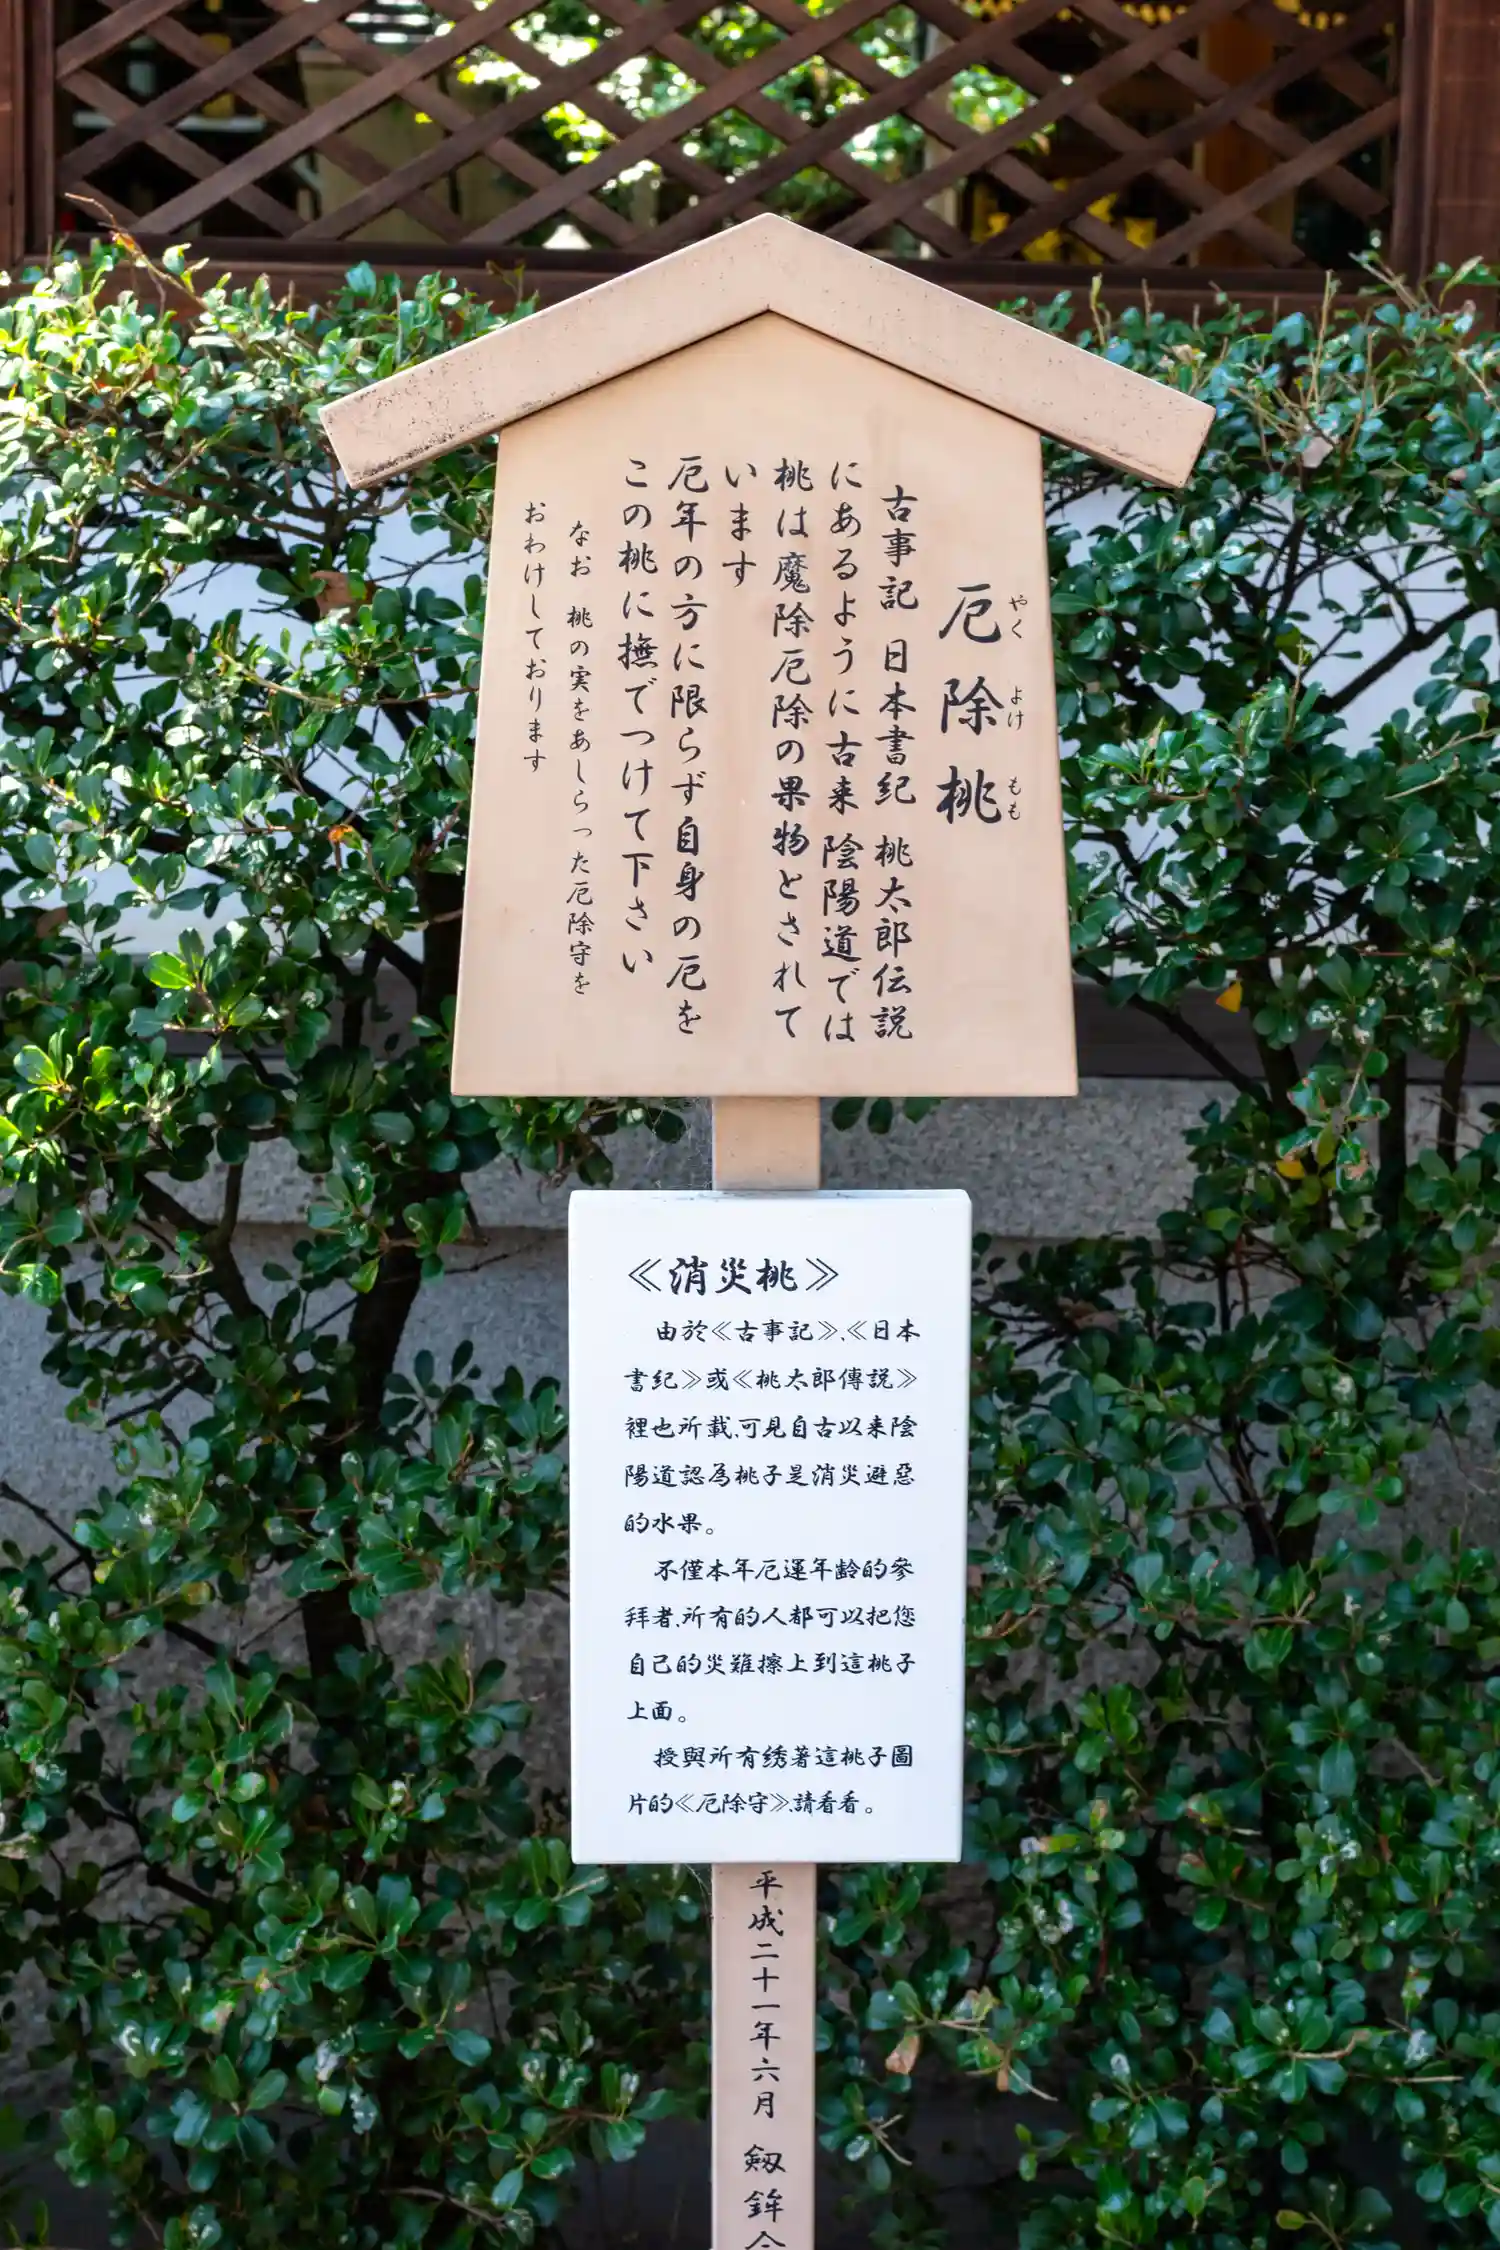 厄除桃
やく よけ もも
古事記 日本書紀 桃太郎伝説
にあるように古来 陰陽道では
桃は魔除厄除の果物とされて
います
厄年の方に限らず自身の厄を
この桃に撫でつけて下さい
なお 桃の実をあしらった厄除守を
おわけしております
≪消災桃≫
由於≪古事記≫、≪日本
書紀≫或≪桃太郎傳説≫
裡也所載、可見自古以来陰
陽道認為桃子是消災避惡
的水果。
不僅本年厄運年齢的參
拜者、所有的人都可以把您
自己的災難擦上到這桃子
上面。
授與所有绣著這桃子圖
片的≪厄除守≫、請看看。
平成二十一年六月 剱鉾会